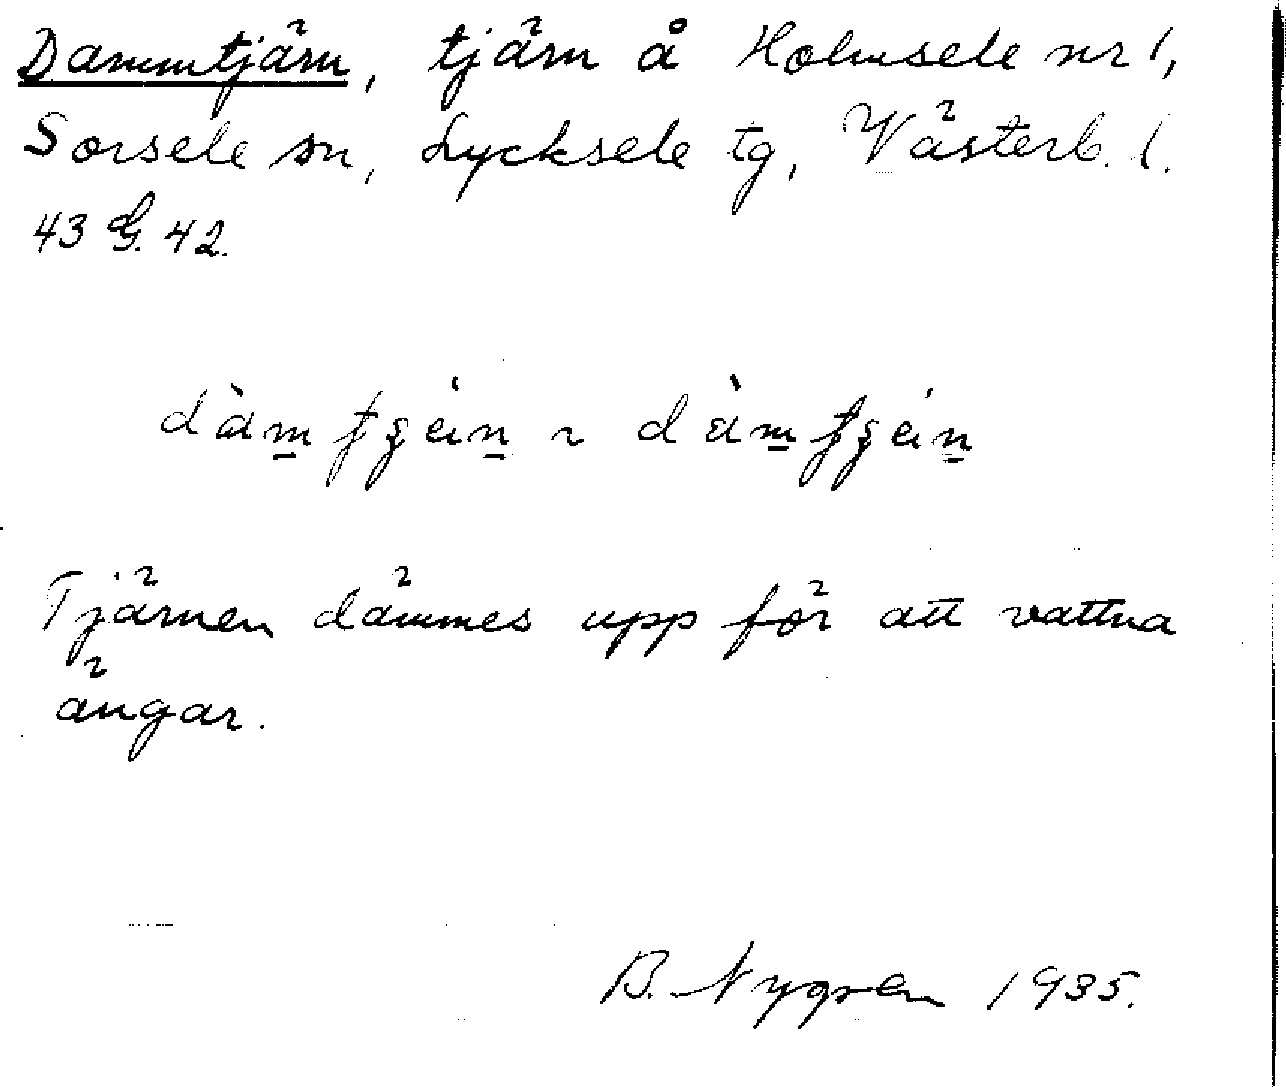 Dammtjärn, tjärn å Holmsele nr 1,
Sorsele sn, Lycksele tg, Västerb. l.
43 G. 42.
Tjärnen dämmes upp för att vattna
ängar.
B. Nygren 1935.